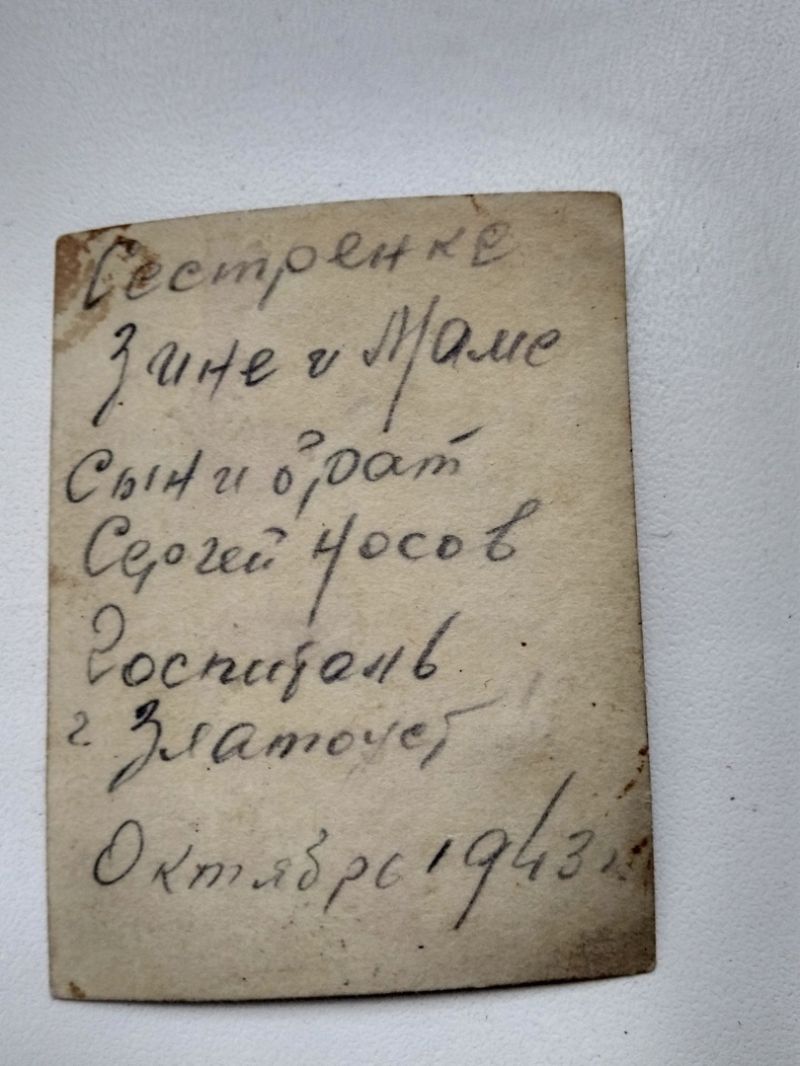 Сестренке
Зине и Маме
Сын и брат
Сергей Носов
Госпиталь
г Златоуст
Октябрь 1943 г